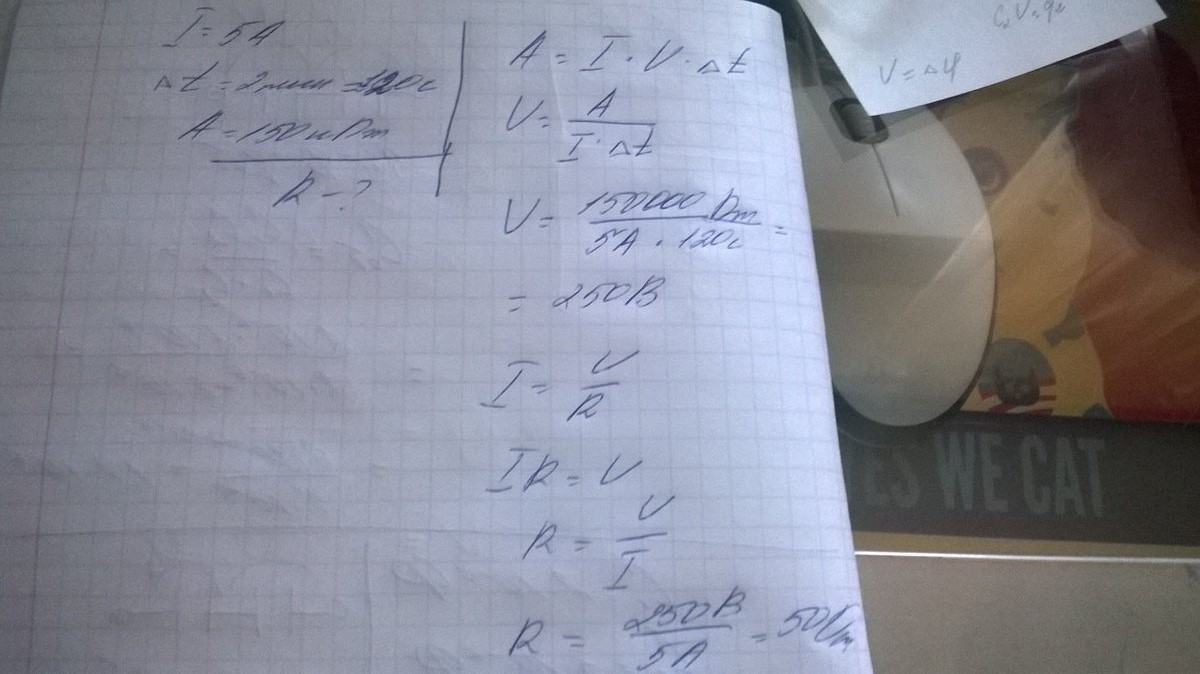 I = 5A
Δt = 2мин = 120с
A = 150кДж
R - ?
A = I · U · Δt
U = A / I · Δt
U = 150000 Дж / 5A · 120с =
= 250В
I = U / R
IR = U
R = U / I
R = 250В / 5A = 50Ом
U = Δφ
YES WE CAT